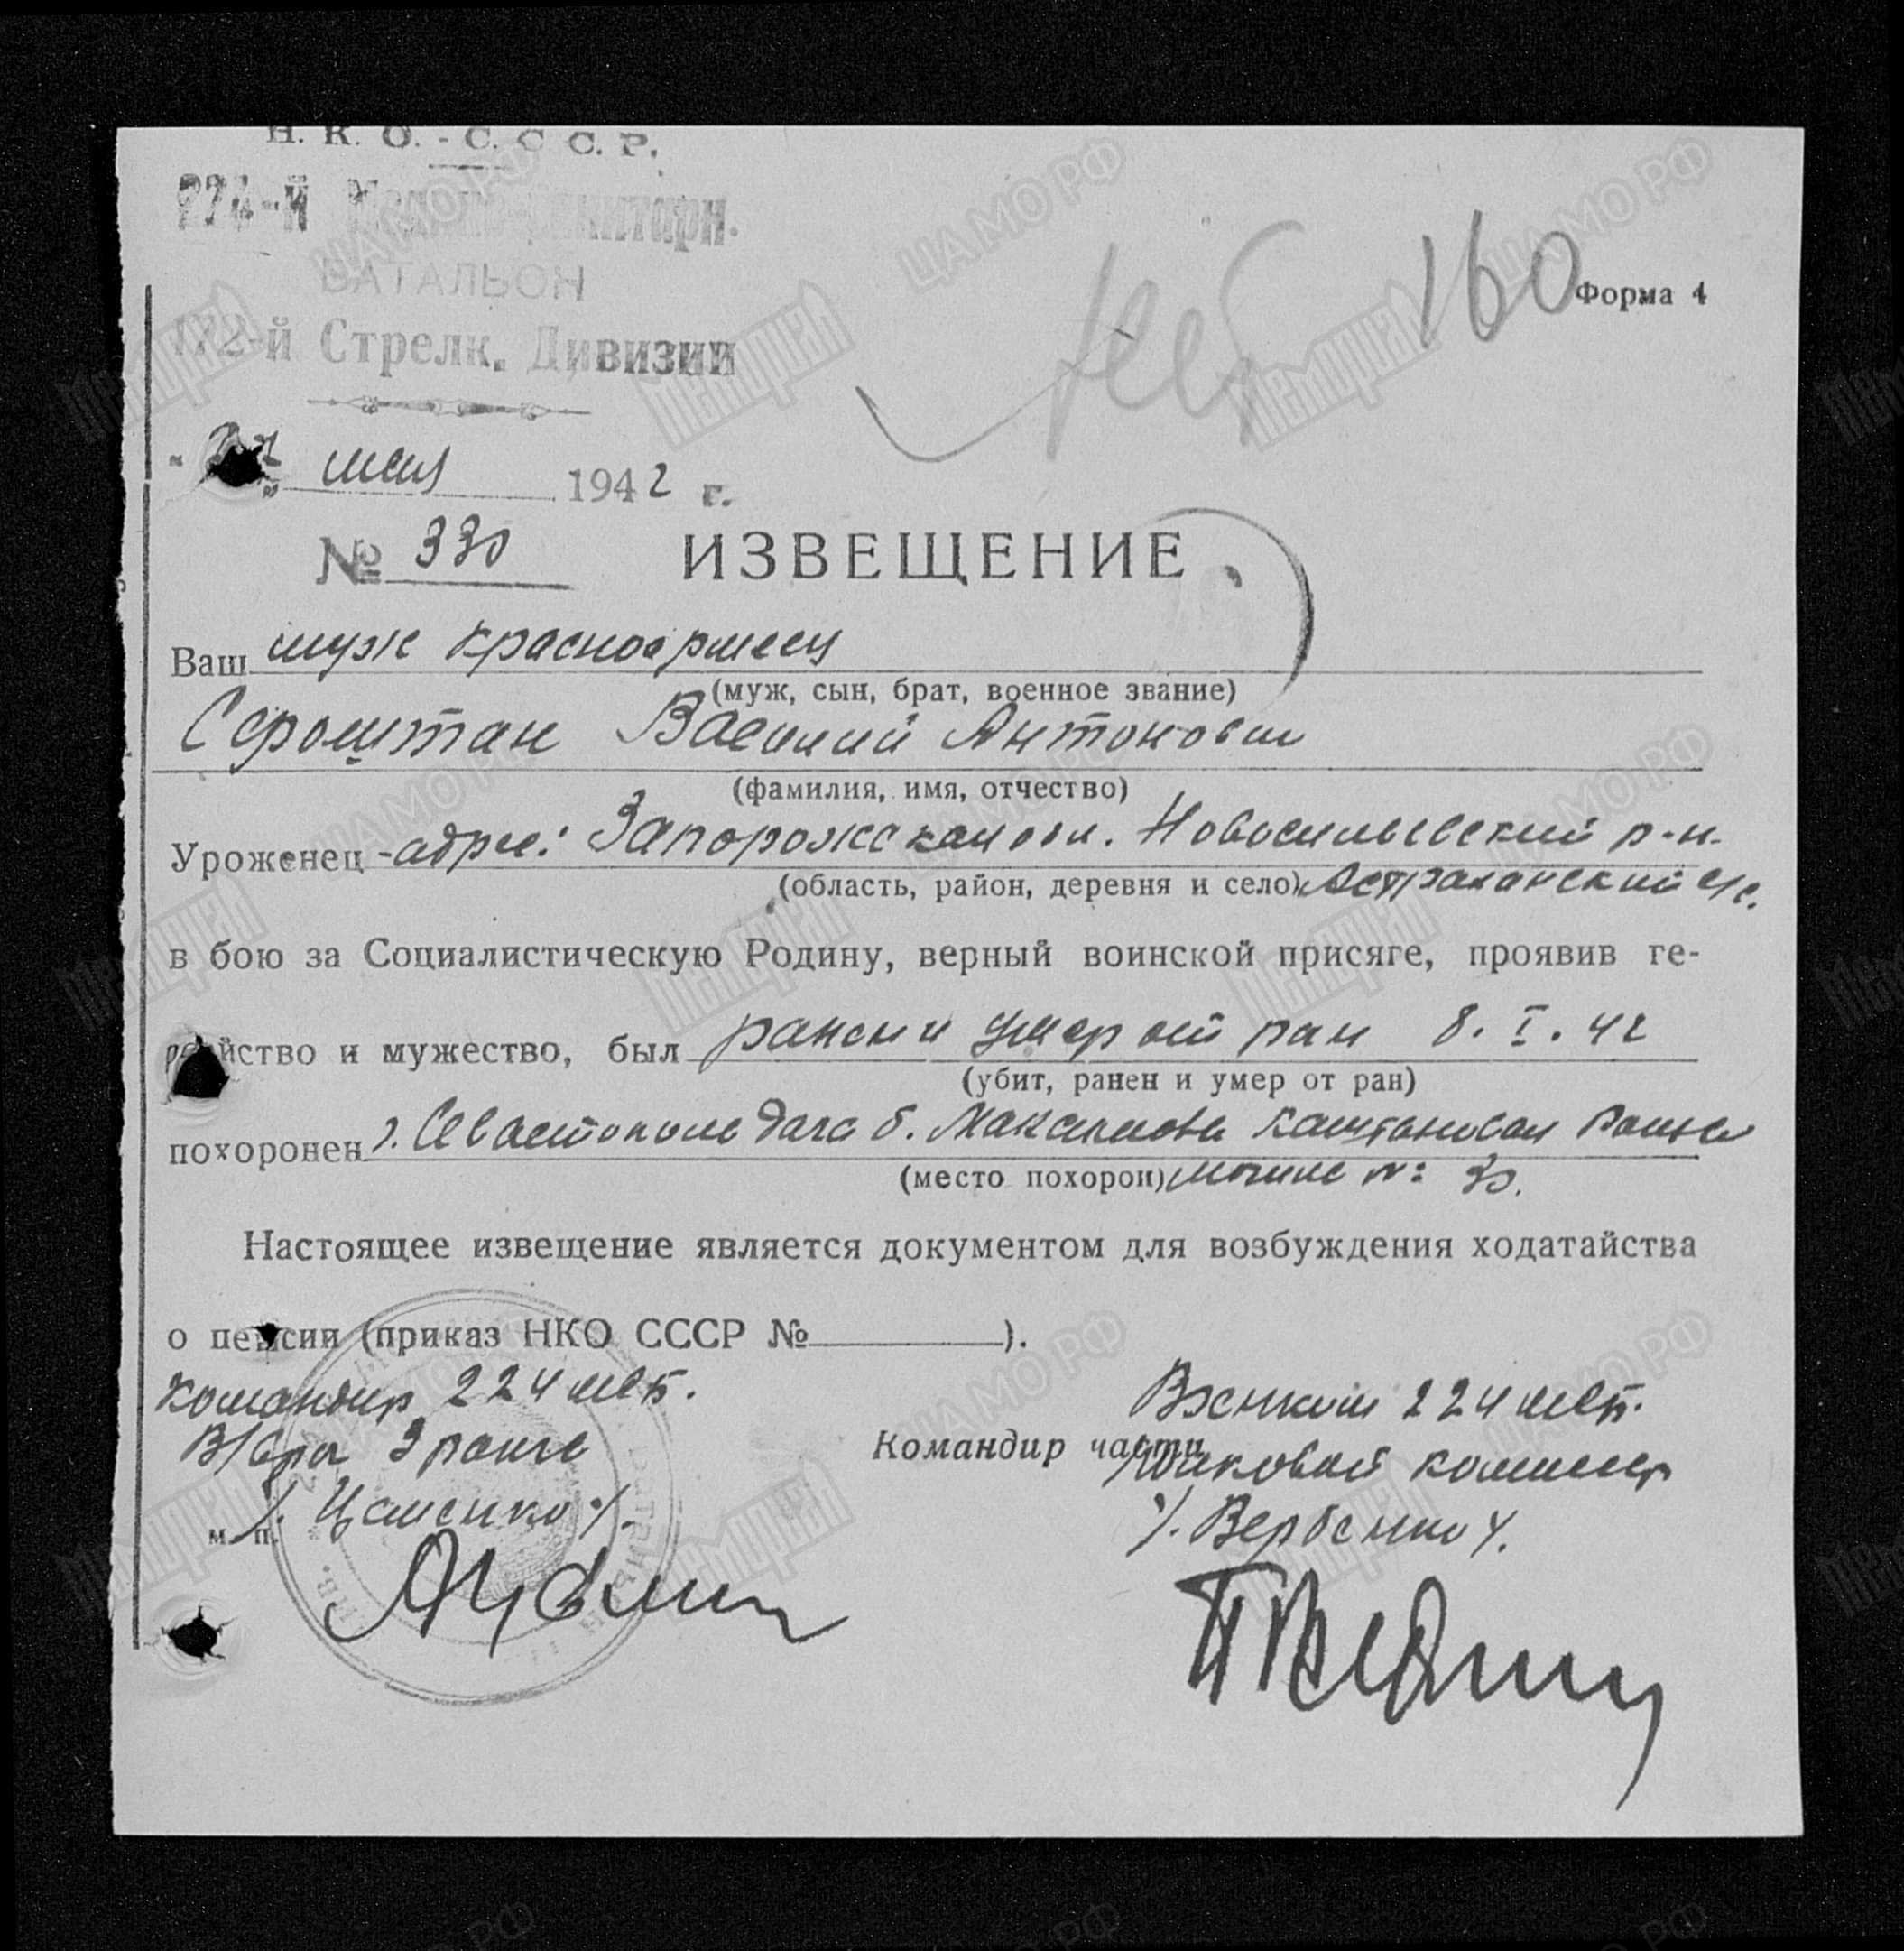 Н. К. О. - С. С С. Р.
224-й Медико-Санитарн.
БАТАЛЬОН
172-й Стрелк. Дивизии
160
Форма 4
мая 1942 г.
№ 330 ИЗВЕЩЕНИЕ
Ваш муж красноармеец
(муж, сын, брат, военное звание)
Сероштан Василий Антонович
(фамилия, имя, отчество)
Уроженец - адрес: Запорожская обл. Новосильевский р-н.
(область, район, деревня и село) Астраханский с/с.
в бою за Социалистическую Родину, верный воинской присяге, проявив ге-
ройство и мужество, был ранен и умер от ран 8. I. 42
(убит, ранен и умер от ран)
похоронен г. Севастополь дача б. Максимова Каштановая
(место похорон) могиле №: 30.
Настоящее извещение является документом для возбуждения ходатайства
о пенсии (приказ НКО СССР № ).
Командир 224 мсб.
В/врач 3 ранга
/. Цвеленко /.
м. п.
Командир части
Военком 224 мсб.
комиссар
/. Вербенко /.
ЦАМО РФ
Мемориал